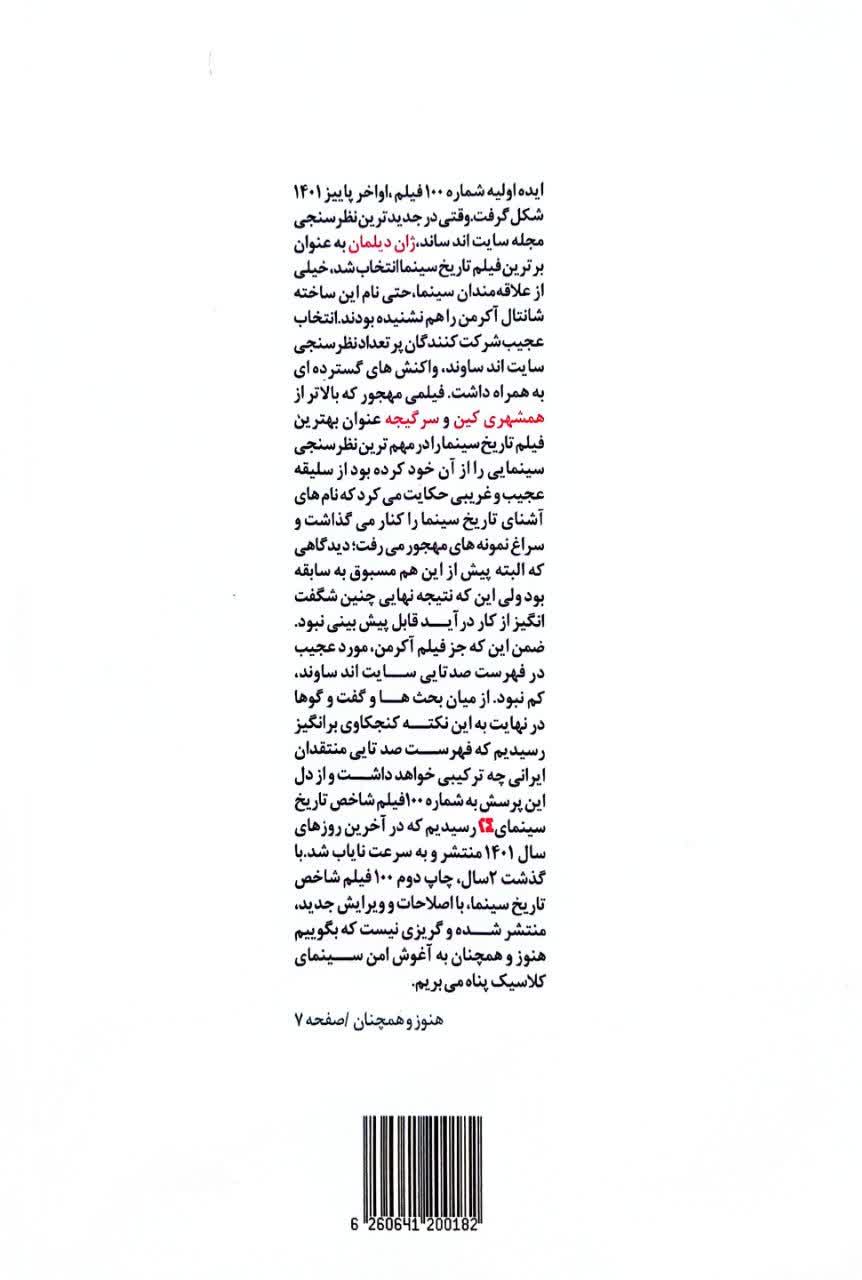 ایده اولیه شماره ۱۰۰ فیلم ،اواخر پاییز ۱۴۰۱
شکل گرفت.وقتی در جدیدترین نظرسنجی
مجله سایت اند ساند،ژان دیلمان به عنوان
برترین فیلم تاریخ سینما انتخاب شد، خیلی
از علاقه مندان سینما،حتی نام این ساخته
شانتال آکرمن را هم نشنیده بودند.انتخاب
عجیب شرکت کنندگان پر تعداد نظر سنجی
سایت اند ساوند، واکنش های گسترده ای
به همراه داشت. فیلمی مهجور که بالاتر از
همشهری کین و سرگیجه عنوان بهترین
فیلم تاریخ سینما را در مهم ترین نظرسنجی
سینمایی را از آن خود کرده بود از سلیقه
عجیب و غریبی حکایت می کرد که نام های
آشنای تاریخ سینما را کنار می گذاشت و
سراغ نمونه های مهجور می رفت؛ دیدگاهی
که البته پیش از این هم مسبوق به سابقه
بود ولی این که نتیجه نهایی چنین شگفت
انگیز از کار در آید قابل پیش بینی نبود.
ضمن این که جز فیلم آکرمن، مورد عجیب
در فهرست صدتایی سایت اند ساوند،
کم نبود. از میان بحث ها و گفت و گوها
در نهایت به این نکته کنجکاوی برانگیز
رسیدیم که فهرست صد تایی منتقدان
ایرانی چه ترکیبی خواهد داشت و از دل
این پرسش به شماره ۱۰۰فیلم شاخص تاریخ
سینمای۲۴ رسیدیم که در آخرین روزهای
سال ۱۴۰۱ منتشر و به سرعت نایاب شد.با
گذشت ۲سال، چاپ دوم ۱۰۰ فیلم شاخص
تاریخ سینما، با اصلاحات و ویرایش جدید،
منتشر شده و گریزی نیست که بگوییم
هنوز و همچنان به آغوش امن سینمای
کلاسیک پناه می بریم.
هنوز و همچنان /صفحه ۷
6 260641 200182